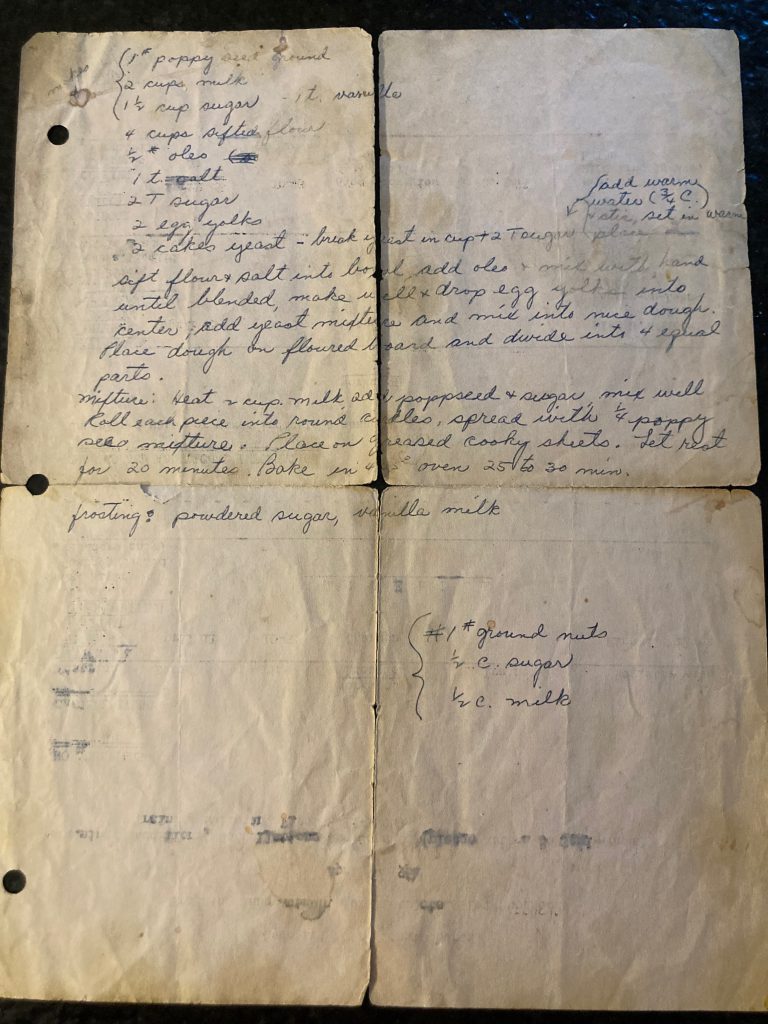 1# poppy seed ground
2 cups milk
1 1/2 cup sugar - 1 t. vanilla
4 cups sifted flour
1/2 # oleo
1 t. salt
2 T sugar
2 egg yolks
add warm
water (3/4 C.)
& stir, set in warm
place
2 cakes yeast - break yeast in cup + 2 T sugar
sift flour & salt into bowl, add oleo & mix with hand
until blended, make well & drop egg yolks into
center, add yeast mixture and mix into nice dough.
Place dough on floured board and divide into 4 equal
parts.
mixture: Heat 2 cup. milk add poppseed & sugar, mix well
Roll each piece into round circles, spread with 1/4 poppy
seed mixture. Place on greased cooky sheets. Let rest
for 20 minutes. Bake in oven 25 to 30 min.
frosting: powdered sugar, vanilla milk
#1# ground nuts
1/2 c. sugar
1/2 c. milk